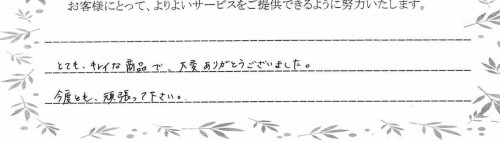 お客様にとって、よりよいサービスをご提供できるように努力いたします。
とても、キレイな商品で、大変ありがとうございました。
今度とも、頑張って下さい。